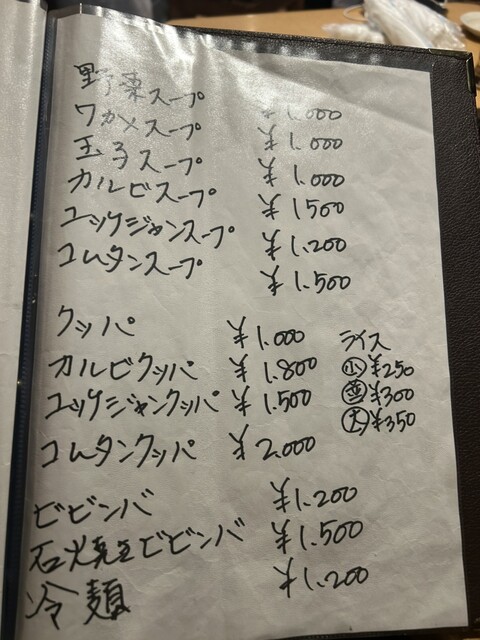 野菜スープ ¥1.000
ワカメスープ ¥1.000
玉子スープ ¥1.000
カルビスープ ¥1.500
ユッケジャンスープ ¥1.200
コムタンスープ ¥1.500
クッパ ¥1.000
カルビクッパ ¥1.800
ユッケジャンクッパ ¥1.500
コムタンクッパ ¥2.000
ライス
小 ¥250
普 ¥300
大 ¥350
ビビンバ ¥1.200
石焼きビビンバ ¥1.500
冷麺 ¥1.200